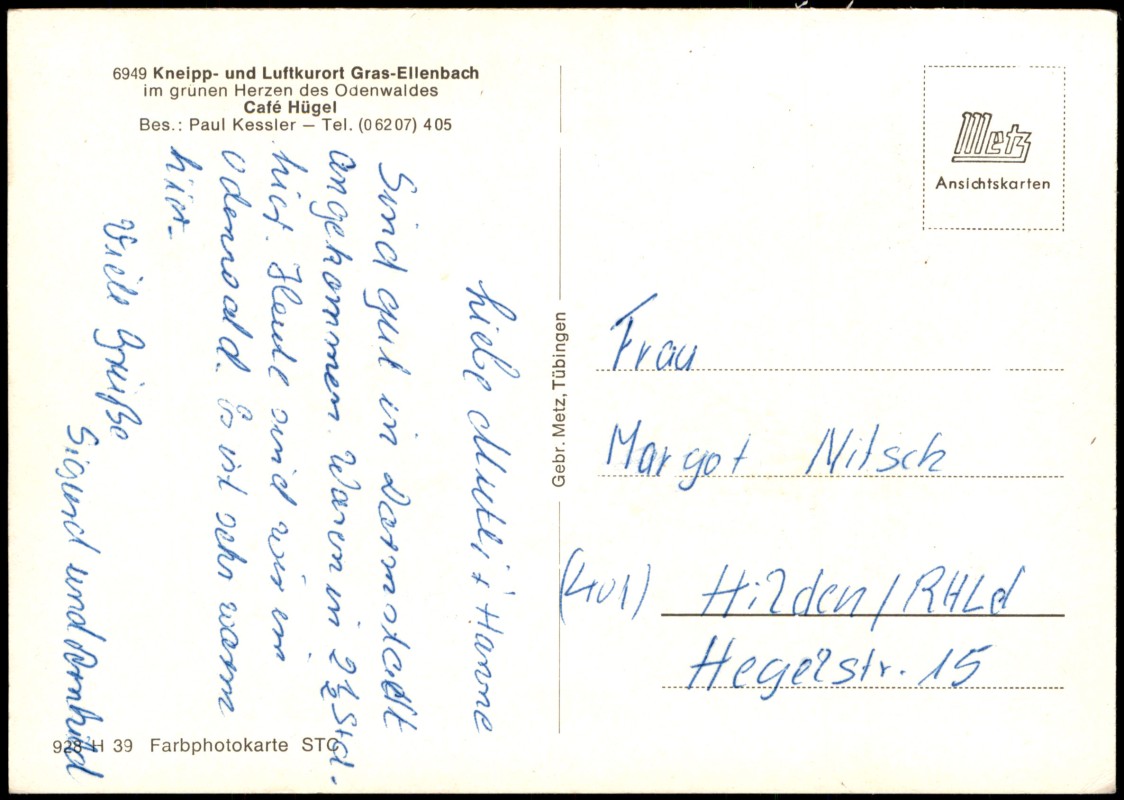 6949 Kneipp- und Luftkurort Gras-Ellenbach
im grünen Herzen des Odenwaldes
Café Hügel
Bes.: Paul Kessler — Tel. (06207) 405
Liebe Mutti + Hanne
Sind gut in Darmstadt
angekommen. Waren in 2½ Std.
hier. Heute sind wir in
Odenwald. Es ist sehr warm
hier.
Viele Grüße
Sigund und
928 H 39 Farbphotokarte STG
Gebr. Metz, Tübingen
Metz
Ansichtskarten
Frau
Margot Nitsch
(401) Hilden/RHLd
Hegelstr. 15